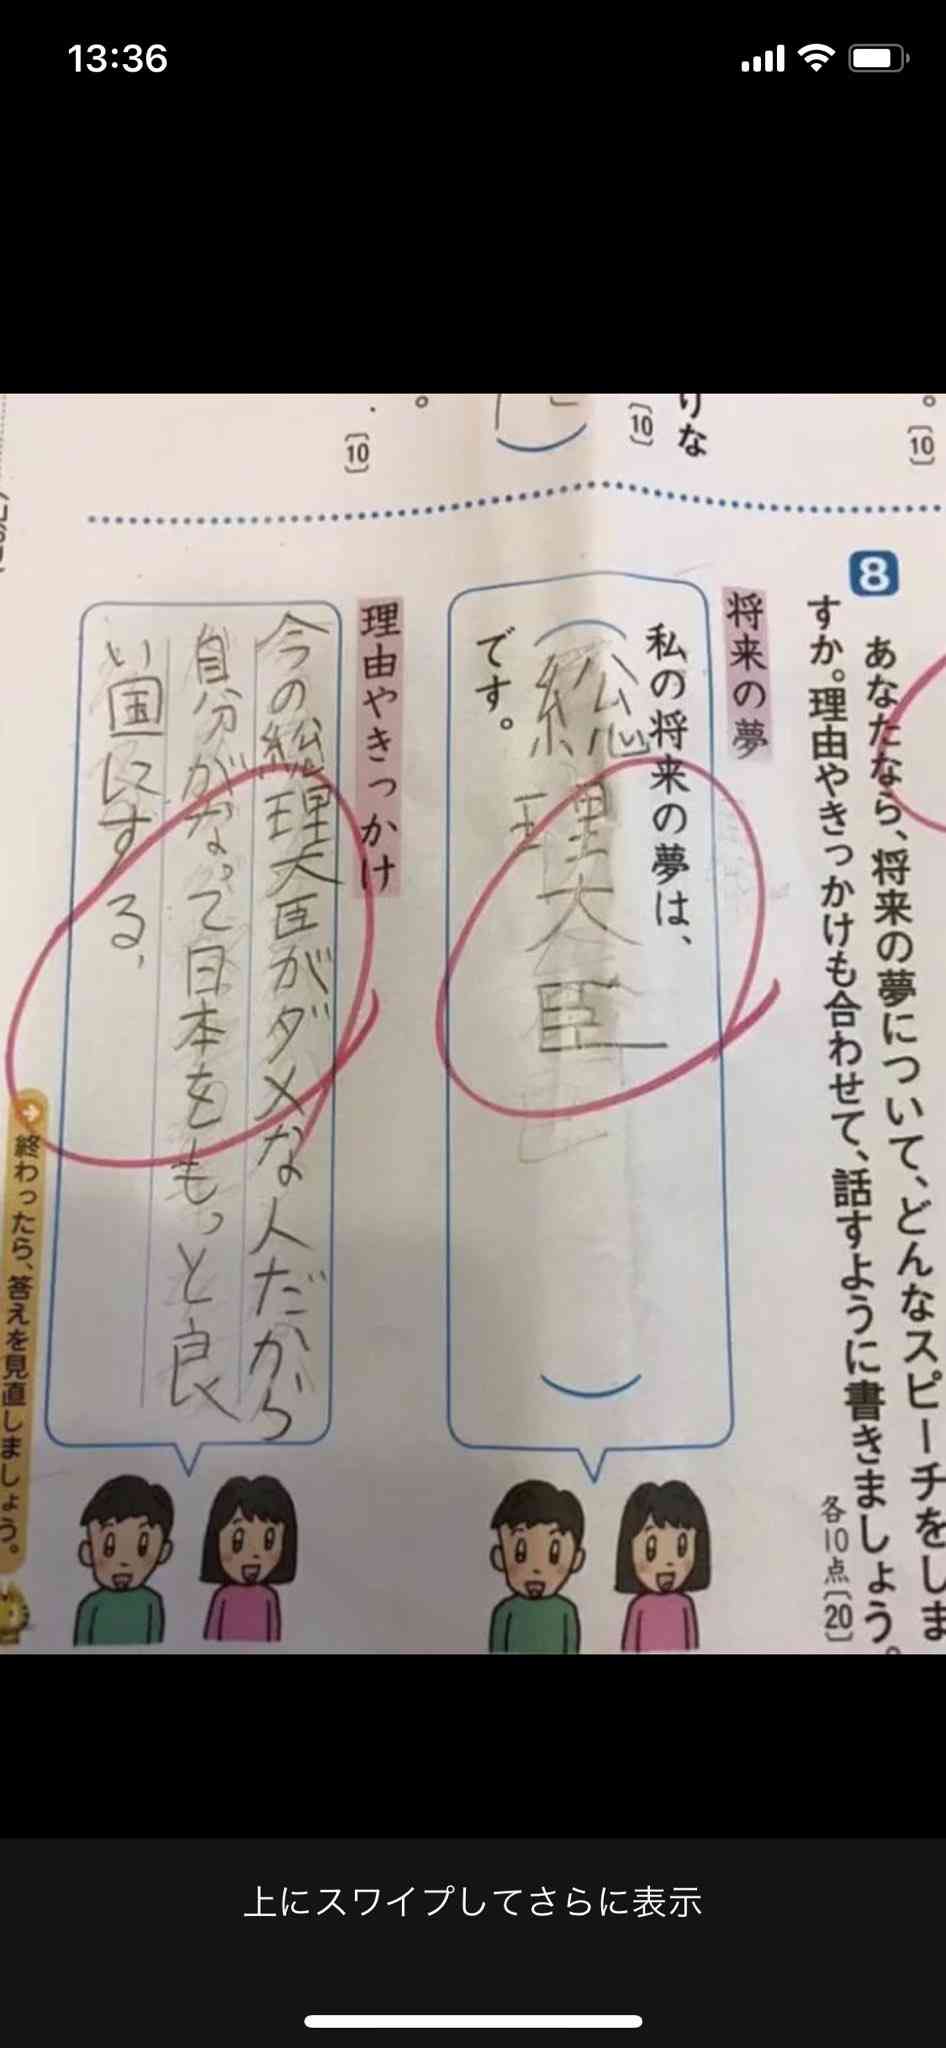 13:36
りな
〔10〕
。
〔10〕
。
〔10〕
8
あなたなら、将来の夢について、どんなスピーチをしま
すか。理由やきっかけも合わせて、話すように書きましょう。
各10点〔20〕
将来の夢
私の将来の夢は、
総理大臣
です。
理由やきっかけ
今の総理大臣がダメな人だから
自分がなって日本をもっと良
い国にする、
終わったら、答えを見直しましょう。
上にスワイプしてさらに表示